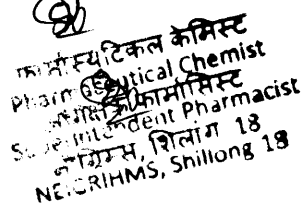 फार्मास्यूटिकल केमिस्ट
Pharmaceutical Chemist
फार्मासिस्ट
Superintendent Pharmacist
शिलांग 18
NEIGRIHMS, Shillong 18